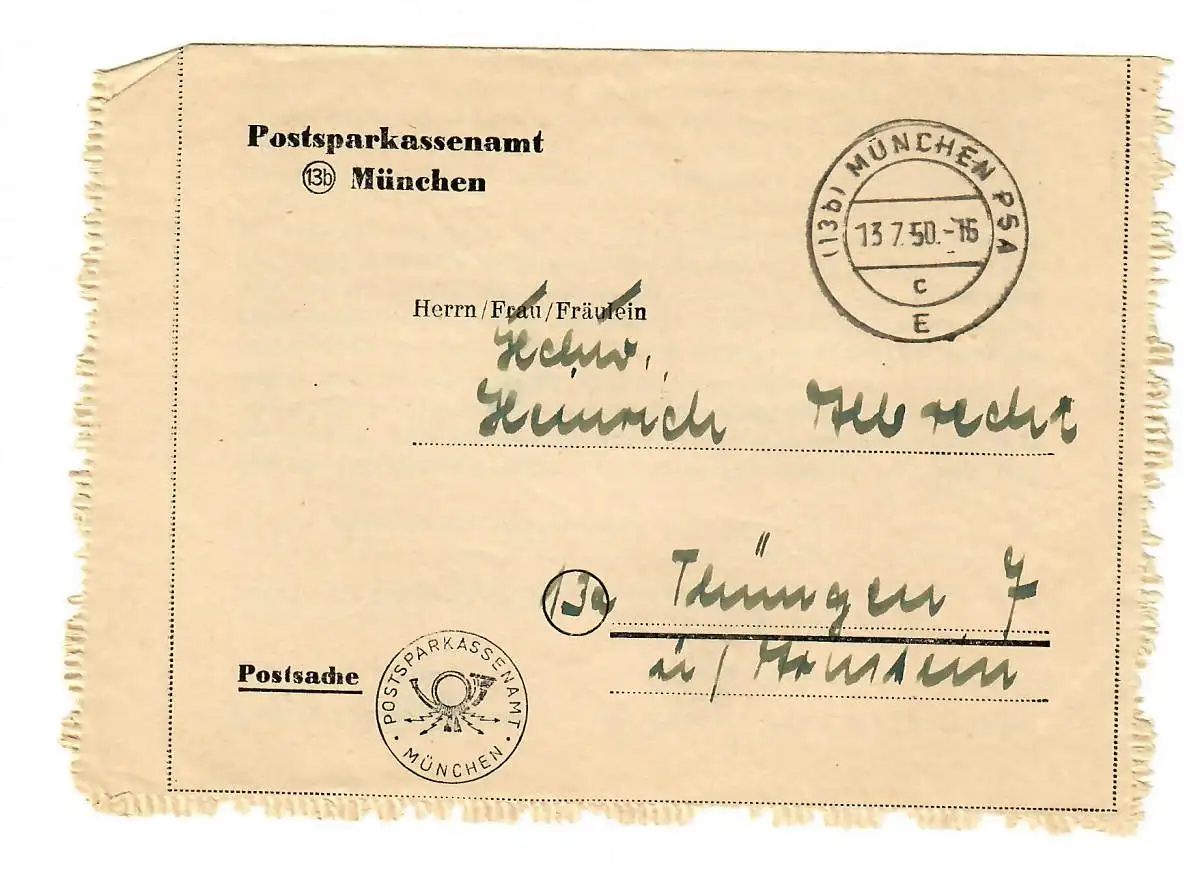 Postsparkassenamt
13b München
(13b) MÜNCHEN PSA
13.7.50.-16
c
E
Herrn/Frau/Fräulein
Heinrich Albrecht
13a Thüngen 7
ü/
Postsache
POSTSPARKASSENAMT
· MÜNCHEN ·